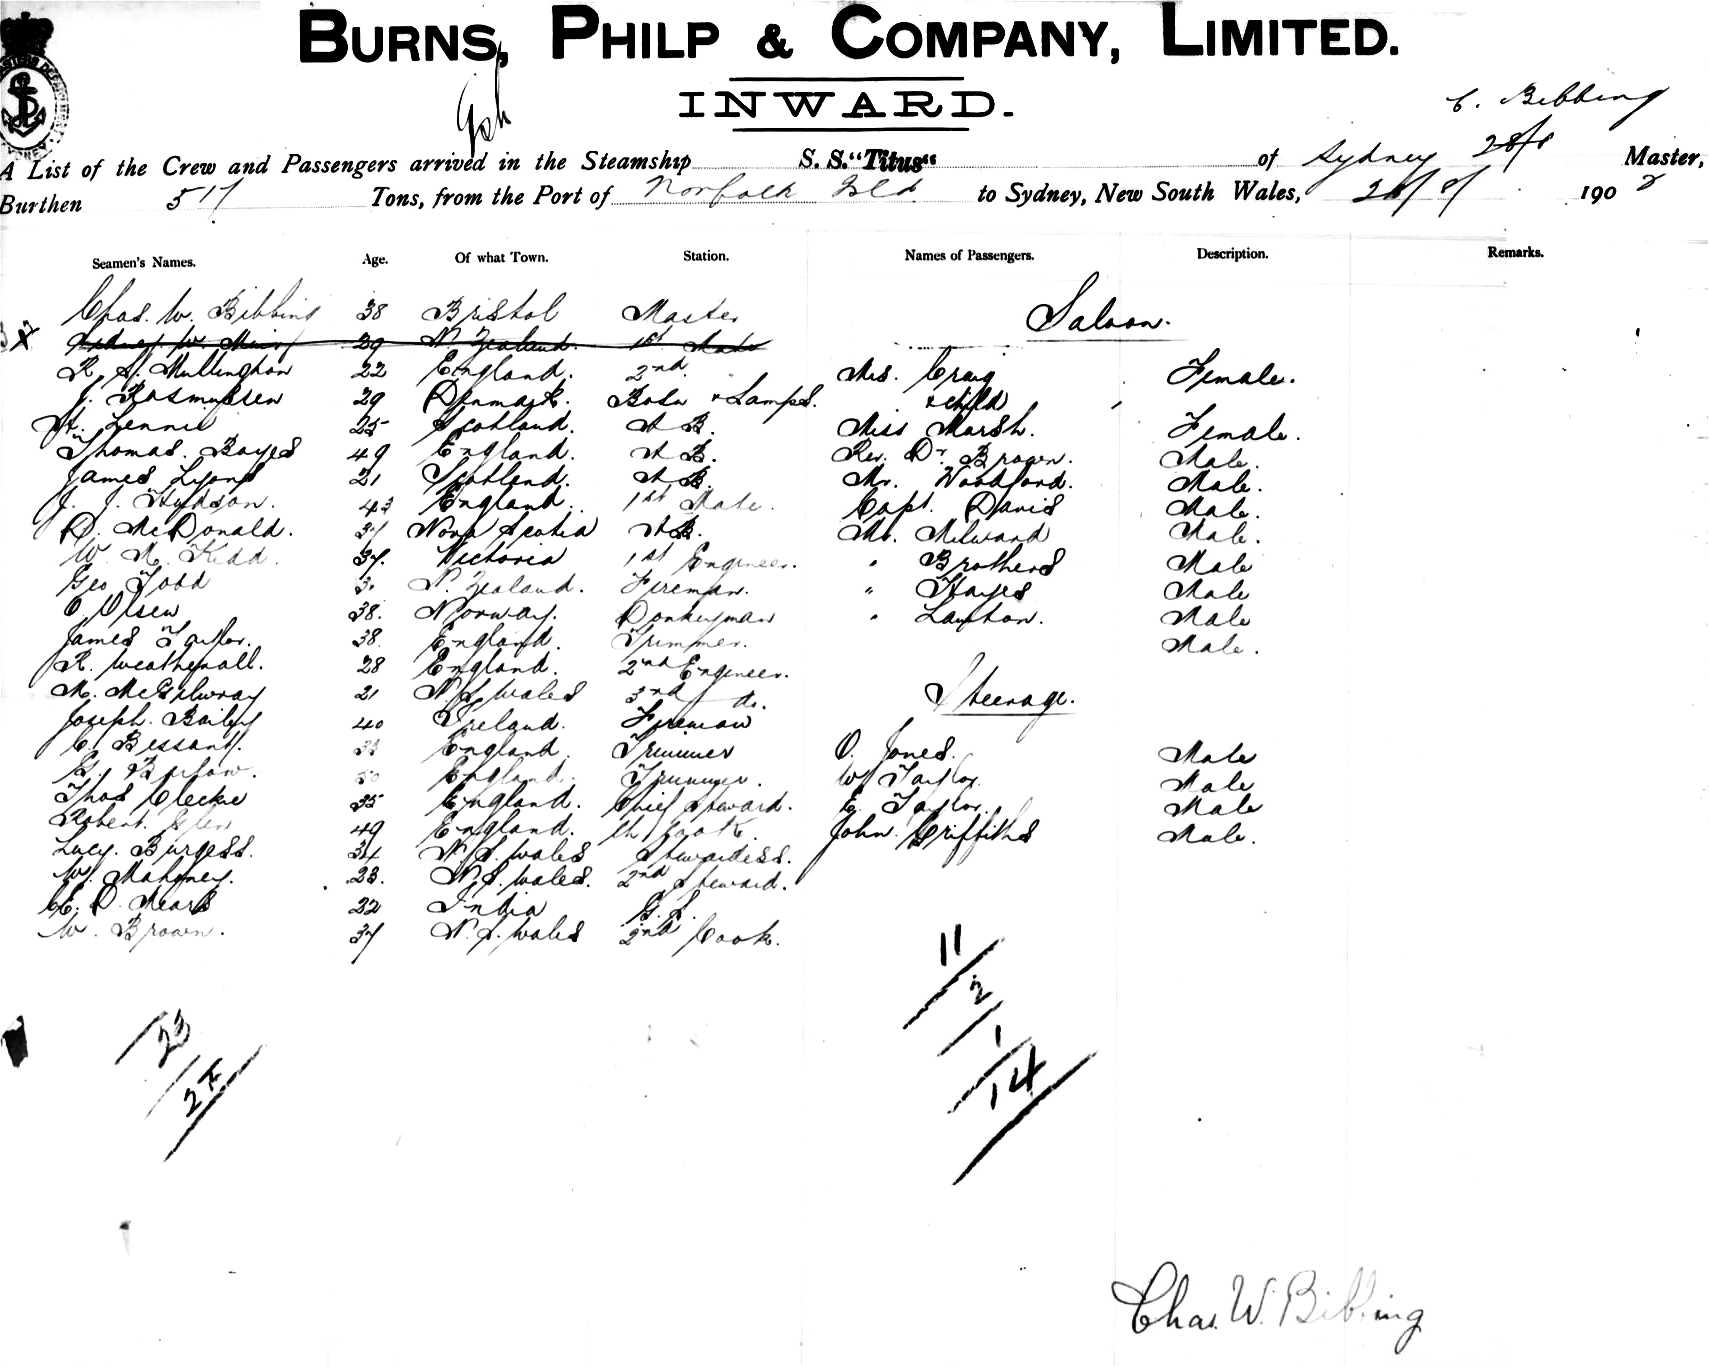 BURNS, PHILP & COMPANY, LIMITED.
INWARD.
C. Bibbing
A List of the Crew and Passengers arrived in the Steamship S. S. "Titus" of Sydney 28/8 Master,
Burthen 517 Tons, from the Port of Norfolk Isld to Sydney, New South Wales, 28/8/ 190
Seamen's Names. Age. Of what Town. Station. Names of Passengers. Description. Remarks.
Chas. W. Bibbing 38 Bristol Master
Saloon.
X Sidney W. Muir 29 N. Zealand. 1st Mate
R. S. Mullington 22 England. 2nd. Mrs. Craig Female.
J. Rasmussen 29 Denmark. Bosn & Lamps. & child
Lennie 25 Scotland. A B. Miss Marsh. Female.
Thomas. Bayes 49 England. A B. Rev. Dr. Brogen. Male.
James Lyons 21 Scotland. A B. Mr. Woodford. Male.
J. J. Hudson. 43 England. 1st Mate. Capt. Davis Male.
D. McDonald. 37 Nova Scotia A B. Mr. Milward Male.
W. M. Kidd. 37. Victoria 1st Engineer. " Brothers Male
Geo Todd N. Zealand. Fireman. " Hayes Male
O Olsen 38. Norway. Donkeyman " Layton. Male
James Taylor. 38. England. Trimmer. Male.
R. Weatherall. 28 England. 2nd Engineer.
M. McGilvray 21 N. S. Wales 3rd do.
Steerage.
Joseph. Bailey 40 Ireland. Fireman
C. Bessant. England. Trimmer O. Jones. Male
G. Barlow. England. Trimmer. W Taylor. Male
Thos Cleckie 35 England. Chief Steward. E. Taylor. Male
Robert. Glen 49 England. Ch Cook. John. Griffiths Male.
Lucy. Burgess. 34 N. S. Wales Stewardess.
W. Mahoney. 23. N. S. Wales. 2nd Steward.
E. O. Mears 22 India G. S.
W. Brown. 37 N. S. Wales 2nd Cook.
11/
2/
1/
14/
23/
24/
Chas. W. Bibbing